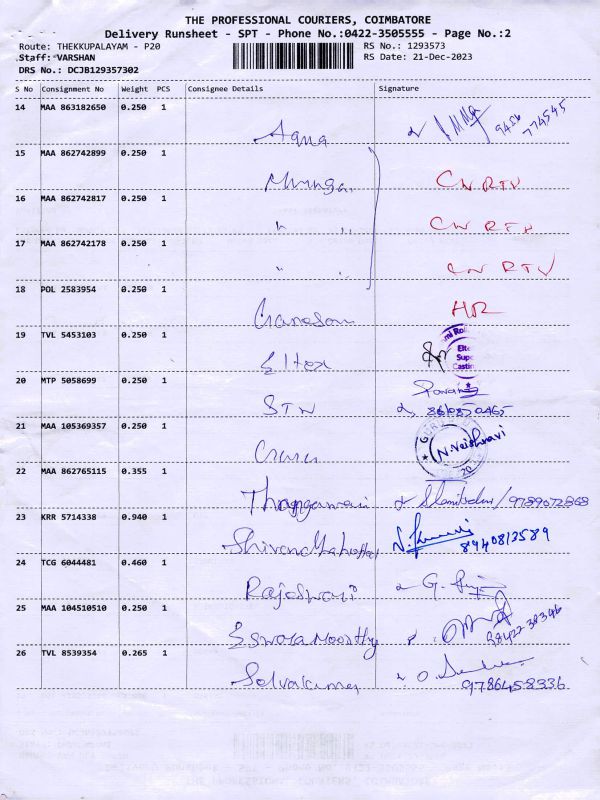 THE PROFESSIONAL COURIERS, COIMBATORE
Delivery Runsheet - SPT - Phone No.:0422-3505555 - Page No.:2
Route: THEKKUPALAYAM - P20 RS No.: 1293573
Staff: VARSHAN RS Date: 21-Dec-2023
DRS No.: DCJB129357302
S No Consignment No Weight PCS Consignee Details Signature
14 MAA 863182650 0.250 1
15 MAA 862742899 0.250 1
CN RTN
16 MAA 862742817 0.250 1
" " CN RTN
17 MAA 862742178 0.250 1
" " CN RTN
18 POL 2583954 0.250 1
HR
19 TVL 5453103 0.250 1
Eltex
20 MTP 5058699 0.250 1
STN
21 MAA 105369357 0.250 1
N. Vaishnavi
22 MAA 862765115 0.355 1
Thangamani 9789072868
23 KRR 5714338 0.940 1
8940813589
24 TCG 6044481 0.460 1
Rajeswari
25 MAA 104510510 0.250 1
Eswaramoorthy 98422-38346
26 TVL 8539354 0.265 1
Selvakumar 9786458336